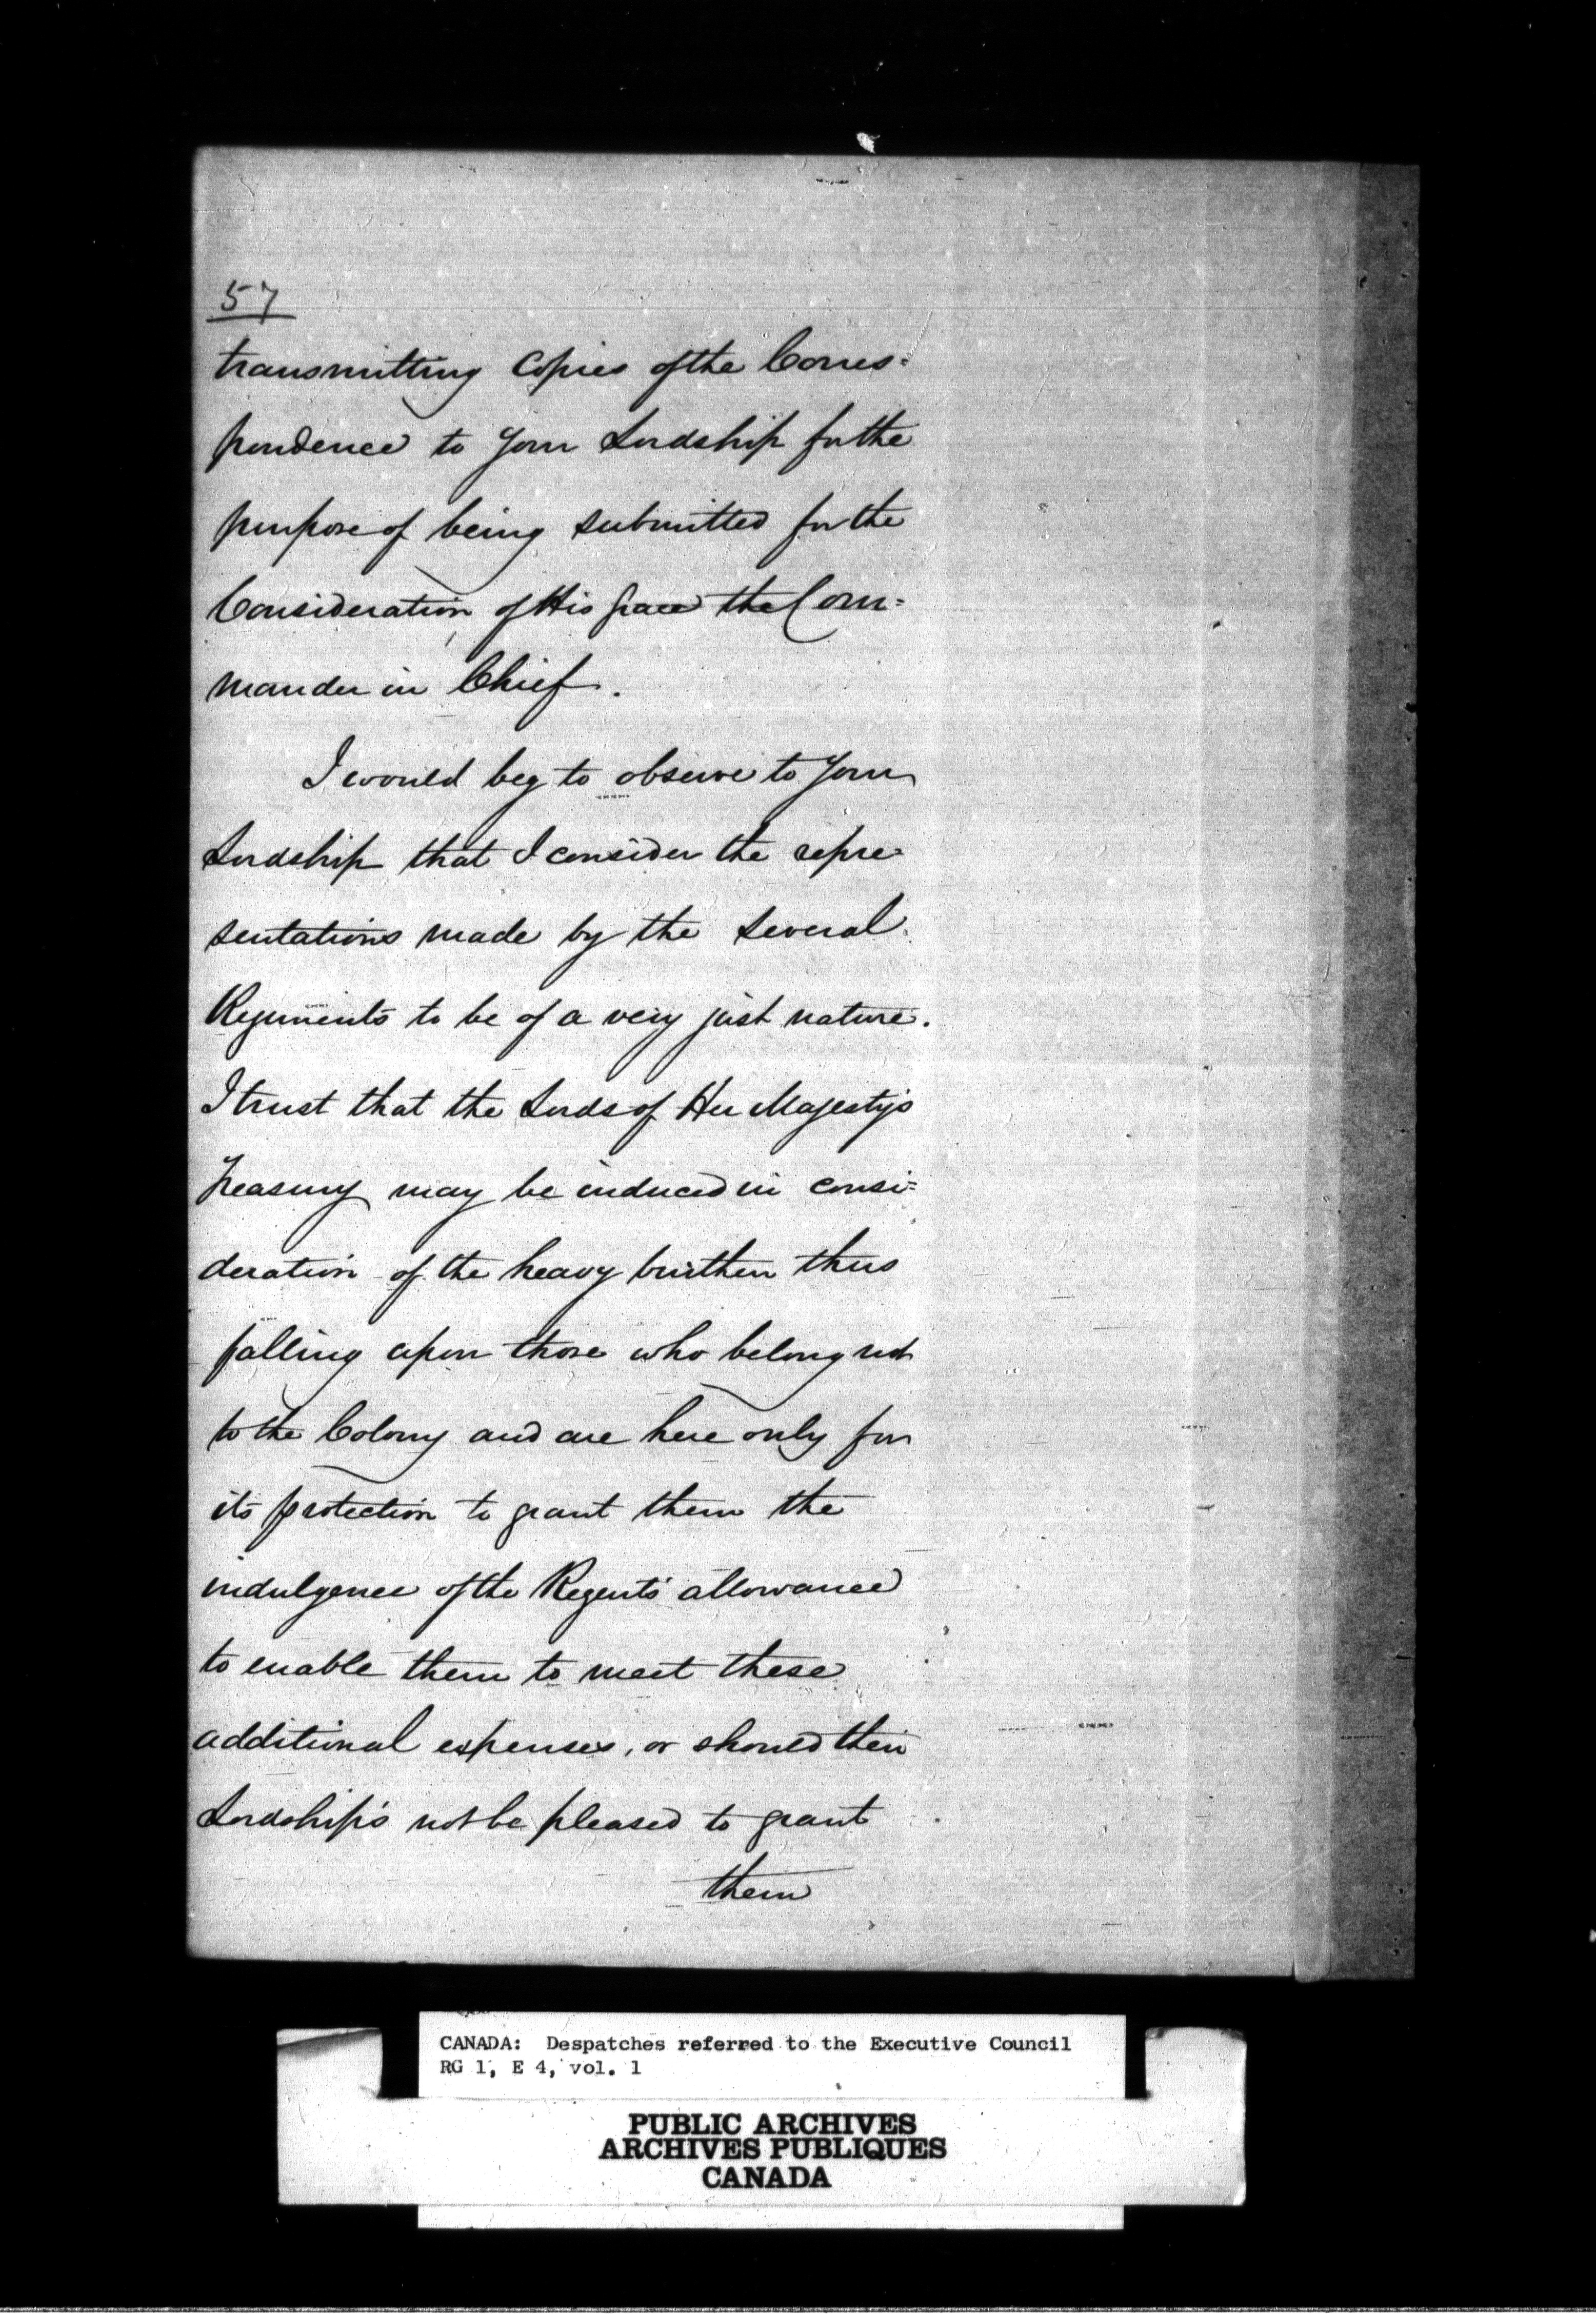 57
transmitting Copies of the Corres=
pondence to Your Lordship for the
purpose of being submitted for the
Consideration of His Grace the Com=
mander in Chief.
I would beg to observe to Your
Lordship that I consider the repre=
sentations made by the several
Regiments to be of a very just nature.
I trust that the Lords of Her Majesty's
Treasury may be induced in consi=
deration of the heavy burthen thus
falling upon those who belong not
to the Colony and are here only for
its protection to grant them the
indulgence of the Regent's allowance
to enable them to meet these
additional expenses, or should their
Lordship's not be pleased to grant
them
CANADA: Despatches referred to the Executive Council
RG 1, E 4, vol. 1
PUBLIC ARCHIVES
ARCHIVES PUBLIQUES
CANADA